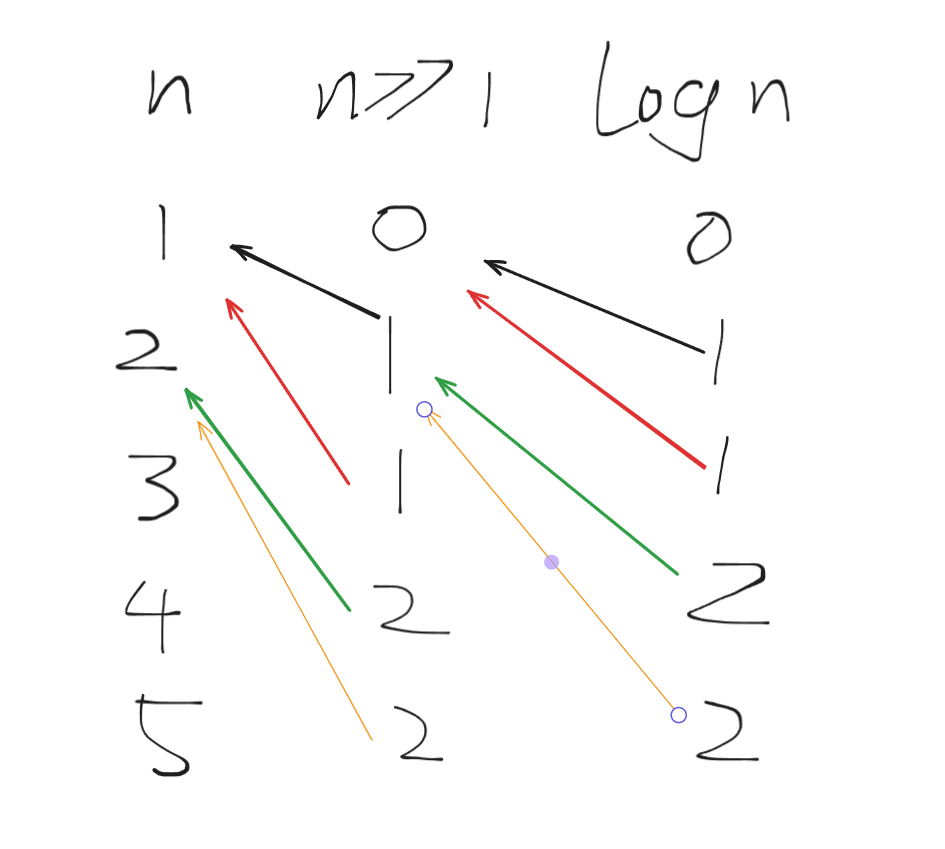 n n>>1 Log n
1 0 0
2 1 1
3 1 1
4 2 2
5 2 2